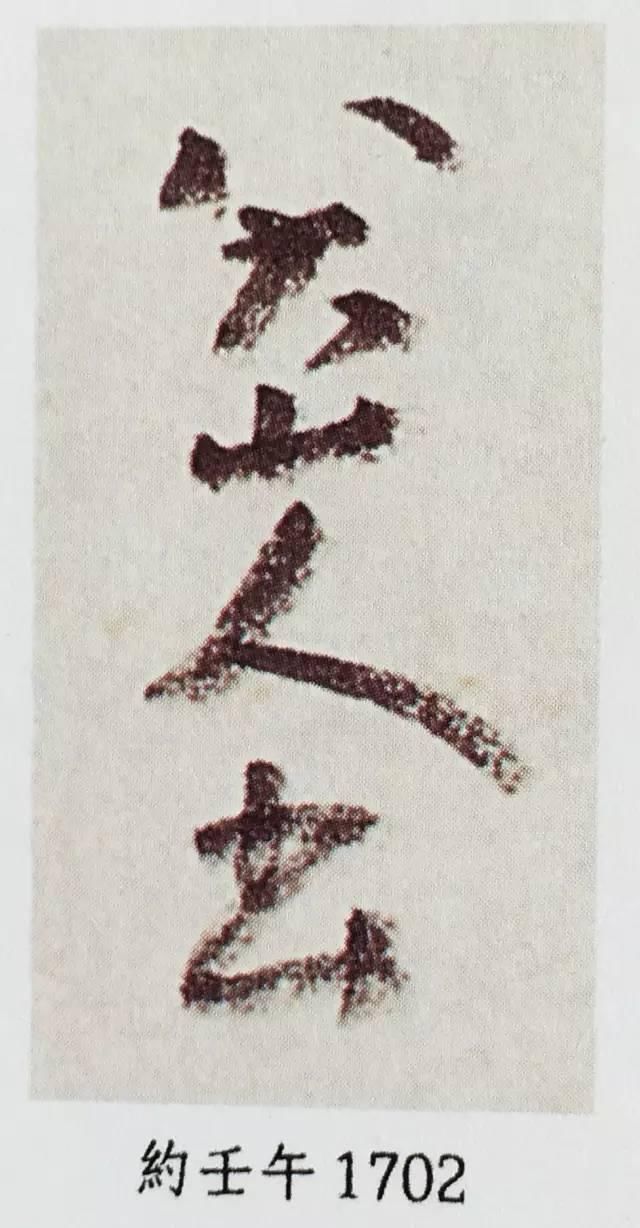 八大山人
約壬午1702